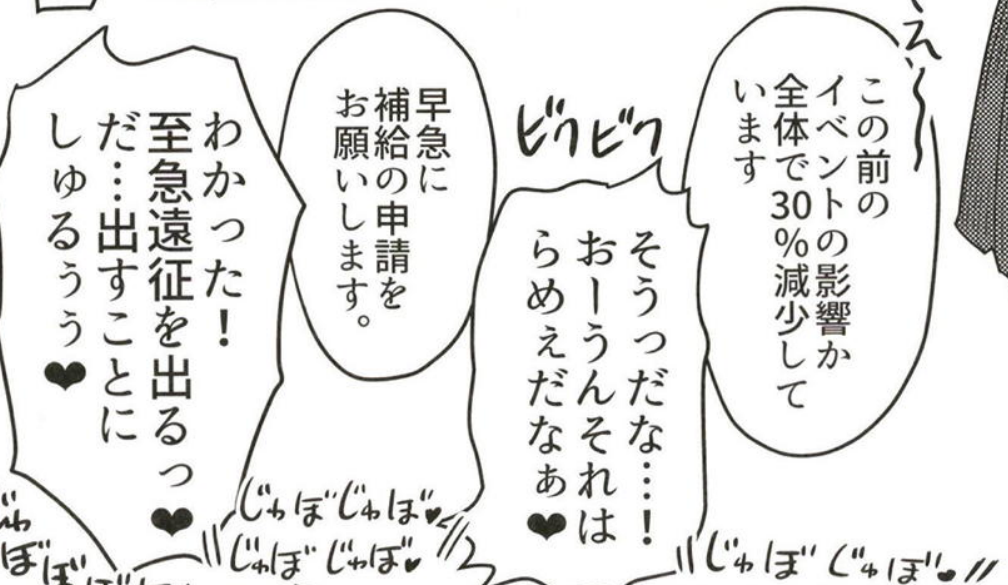 え〜
この前の
イベントの影響か
全体で30%減少して
います
ビクビク
そうっだな…!
おーうんそれは
らめぇだなぁ❤
早急に
補給の申請を
お願いします。
わかった!
至急遠征を出るっ❤
だ…出すことに
しゅるぅぅ❤
じゅぼじゅぼ♥
じゅぼじゅぼ♥
じゅぼじゅぼ♥